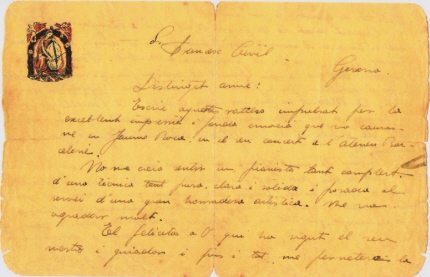 Sr. Tomàs Civil
Gerona.
Distingit amic:
Escric aquestes ratlles impulsat per la
excellent impressió i fonda emoció que va causar-
me en Jaume Roca, en el seu concert a l'Ateneu Bar-
celonès.
No he vist entre els pianistes tant complert.
d'una tècnica tant pura, clara i sòlida i posada al
servei d'una gran honradesa artística. Me va
agradar molt.
El felicito a V. qui ha sigut el seu
mestre i guiador i fins i tot, me permeteria la